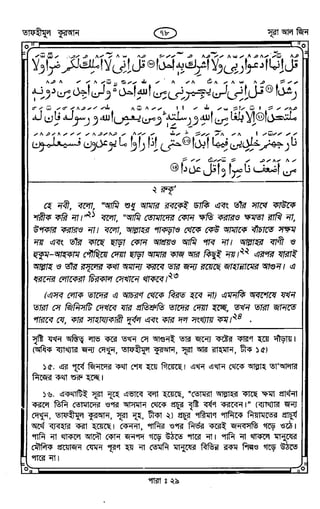 তাফহীমুল কুরআন ৭৮ সূরা আল জিন
قُلْ إِنَّمَا أَدْعُوا رَبِّي وَلَا أُشْرِكُ بِهِ أَحَدًا ۝ قُلْ إِنِّي لَا أَمْلِكُ لَكُمْ ضَرًّا وَلَا
رَشَدًا ۝ قُلْ إِنِّي لَنْ يُجِيرَنِي مِنَ اللَّهِ أَحَدٌ وَلَنْ أَجِدَ مِنْ دُونِهِ
مُلْتَحَدًا ۝ إِلَّا بَلَاغًا مِنَ اللَّهِ وَرِسَالَاتِهِ وَمَنْ يَعْصِ اللَّهَ وَرَسُولَهُ فَإِنَّ لَهُ
نَارَ جَهَنَّمَ خَالِدِينَ فِيهَا أَبَدًا ۝ حَتَّى إِذَا رَأَوْا مَا يُوعَدُونَ فَسَيَعْلَمُونَ
مَنْ أَضْعَفُ نَاصِرًا وَأَقَلُّ عَدَدًا ۝
২ রুকূ'
হে নবী, বলো, “আমি শুধু আমার রবকেই ডাকি এবং তাঁর সাথে কাউকে
শরীক করি না।২১ বলো, “আমি তোমাদের কোন ক্ষতি করারও ক্ষমতা রাখি না,
উপকার করারও না। বলো, আল্লাহর পাকড়াও থেকে কেউ আমাকে বাঁচাতে সক্ষম
নয় এবং তাঁর কাছে ছাড়া কোন আশ্রয়ও আমি পাব না। আল্লাহর বাণী ও
হুকুম-আহকাম পৌঁছিয়ে দেয়া ছাড়া আমার কাজ আর কিছুই নয়।২২ এরপর যারাই
আল্লাহ ও তাঁর রসূলের কথা অমান্য করবে তার জন্য রয়েছে জাহান্নামের আগুন। এ
ধরনের লোকেরা চিরকাল সেখানে থাকবে।২৩
(এসব লোক তাদের এ আচরণ থেকে বিরত হবে না) এমনকি অবশেষে যখন
তারা সে জিনিসটি দেখবে যার প্রতিশ্রুতি তাদের দেয়া হচ্ছে, তখন তারা জানতে
পারবে যে, কার সাহায্যকারী দুর্বল এবং কার দল সংখ্যায় কম।২৪
সৃষ্টি যখন অস্তিত্ব লাভ করে তখন সে আগুনই তার জন্যে কষ্টের কারণ হয়ে দাঁড়ায়।
(অধিক ব্যাখ্যার জন্য দেখুন, তাফহীমুল কুরআন, সূরা আর রাহমান, টীকা ১৫)
১৫. এর পূর্বে জিনদের কথা শেষ হয়ে গিয়েছে। এখন এখান থেকে আল্লাহ তা'আলার
নিজের কথা শুরু হচ্ছে।
১৬. একথাটিই সূরা নূহে এভাবে বলা হয়েছে, “তোমরা আল্লাহর কাছে ক্ষমা প্রার্থনা
করলে তিনি তোমাদের ওপর আসমান থেকে প্রচুর বৃষ্টি বর্ষণ করবেন।” (ব্যাখ্যার জন্য
দেখুন, তাফহীমুল কুরআন, সূরা নূহ, টীকা ২) প্রচুর পরিমাণ পানিকে নিয়ামতের প্রাচুর্য
অর্থে ব্যবহার করা হয়েছে। কেননা, পানির ওপর নির্ভর করেই জনবসতি গড়ে ওঠে।
পানি না থাকলে আদৌ কোন জনপদ গড়ে উঠতে পারে না। পানি না থাকলে মানুষের
মৌলিক প্রয়োজন যেমন পূরণ হয় না তেমনি মানুষের বিভিন্ন রকম শিল্পও গড়ে উঠতে
পারে না।
পারা : ২৯